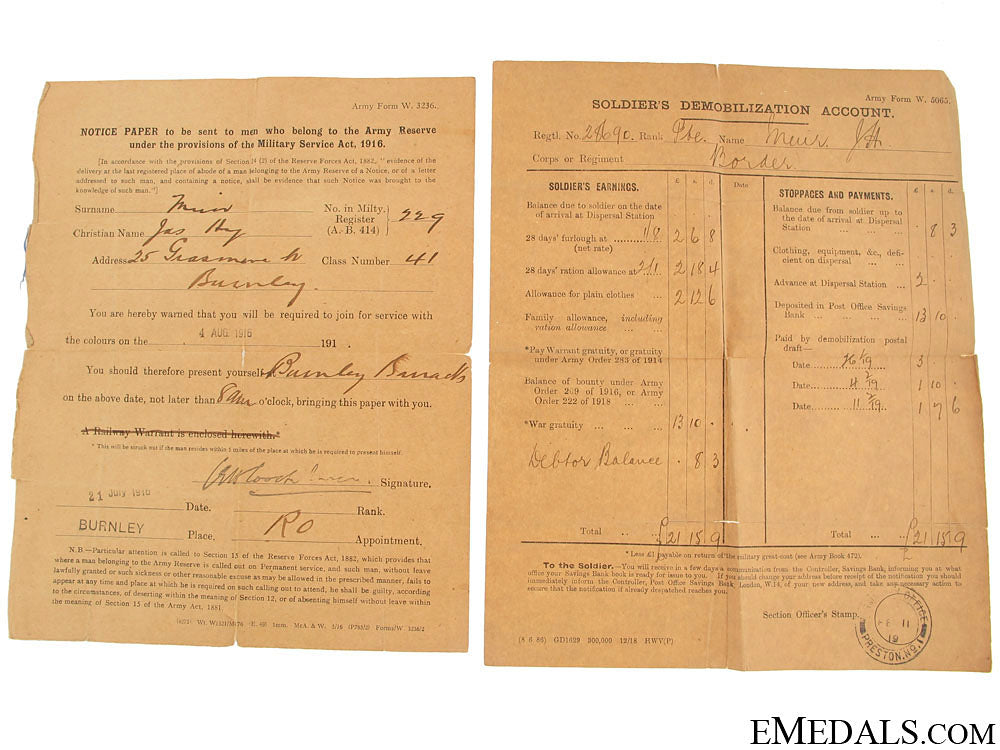 Army Form W. 3236.
NOTICE PAPER to be sent to men who belong to the Army Reserve
under the provisions of the Military Service Act, 1916.
[In accordance with the provisions of Section 14 (2) of the Reserve Forces Act, 1882, "evidence of the
delivery at the last registered place of abode of a man belonging to the Army Reserve of a Notice, or of a letter
addressed to such man, and containing a notice, shall be evidence that such Notice was brought to the
knowledge of such man."]
Surname Muir No. in Milty. Register (A.B. 414) 229
Christian Name Jas Hy
Address 25 Grasmere St Class Number 41
Burnley.
You are hereby warned that you will be required to join for service with
the colours on the 4 AUG 1916 191 .
You should therefore present yourself at Burnley Barracks
on the above date, not later than 8 am o'clock, bringing this paper with you.
A Railway Warrant is enclosed herewith.*
* This will be struck out if the man resides within 5 miles of the place at which he is required to present himself.
Signature.
21 July 1916 Date. Rank.
BURNLEY Place. RO Appointment.
N.B.—Particular attention is called to Section 15 of the Reserve Forces Act, 1882, which provides that
where a man belonging to the Army Reserve is called out on Permanent service, and such man, without leave
lawfully granted or such sickness or other reasonable excuse as may be allowed in the prescribed manner, fails to
appear at any time and place at which he is required on such calling out to attend, he shall be guilty, according
to the circumstances, of deserting within the meaning of Section 12, or of absenting himself without leave within
the meaning of Section 15 of the Army Act, 1881.
1mm. McA. & W. 5/16 Forms/W. 3236/2
Army Form W. 5065.
SOLDIER'S DEMOBILIZATION ACCOUNT.
Regtl. No. 28690. Rank Pte. Name Muir. J.H.
Corps or Regiment Border.
SOLDIER'S EARNINGS. £ s. d. Date
Balance due to soldier on the date
of arrival at Dispersal Station
28 days' furlough at 1/8 2 6 8
(net rate)
28 days' ration allowance at 2/1 2 18 4
Allowance for plain clothes 2 12 6
Family allowance, including
ration allowance
*Pay Warrant gratuity, or gratuity
under Army Order 283 of 1914
Balance of bounty under Army
Order 209 of 1916, or Army
Order 222 of 1918
*War gratuity 13 10 .
Debtor Balance . 8 3
Total £21 15 9
STOPPAGES AND PAYMENTS. £ s. d.
Balance due from soldier up to
the date of arrival at Dispersal
Station . 8 3
Clothing, equipment, &c., defi-
cient on dispersal
Advance at Dispersal Station 2 . .
Deposited in Post Office Savings
Bank 13 10 .
Paid by demobilization postal
draft—
Date 3 . .
Date 1 10 .
Date 1 7 6
Total £21 15 9
* Less £1 payable on return of the military great-coat (see Army Book 472).
To the Soldier.—You will receive in a few days a communication from the Controller, Savings Bank, informing you at what
office your Savings Bank book is ready for issue to you. If you should change your address before receipt of the notification you should
immediately inform the Controller, Post Office Savings Bank, London, W.14, of your new address, and take necessary action to
ensure that the notification if already despatched reaches you.
Section Officer's Stamp.
OFFICE
11
19
PRESTON. NO.1
(8 6 86) GD1629 300,000 12/18 HWV(P)
EMEDALS.COM